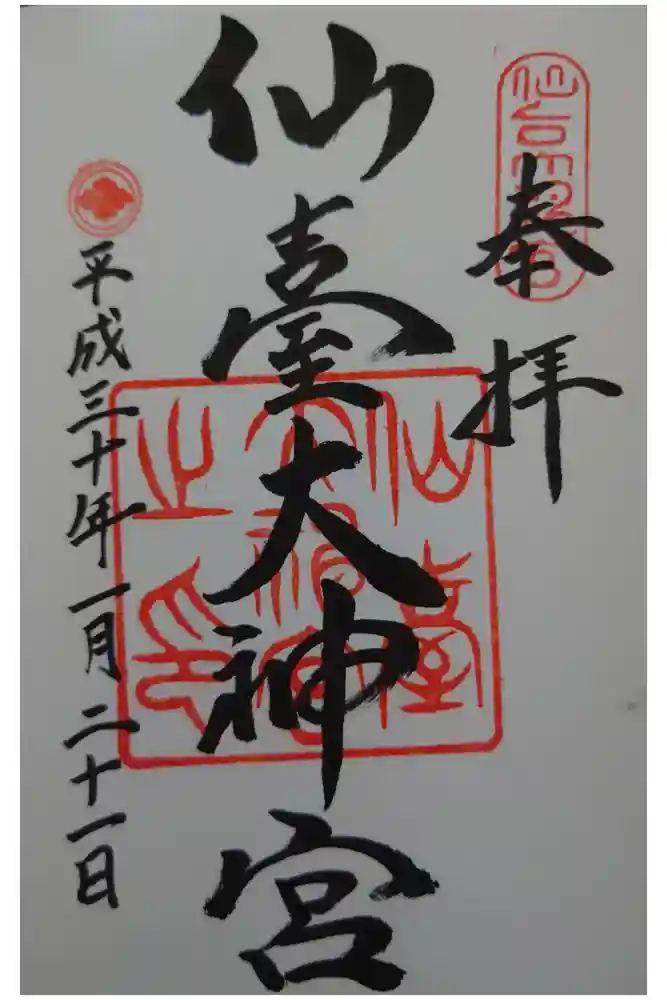 奉拝
仙臺大神宮
仙臺大神宮之印
平成三十年一月二十一日